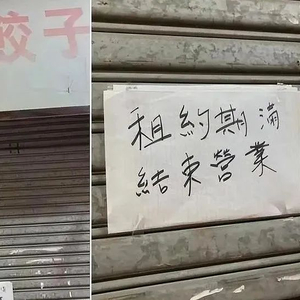 餃子
租約期滿
結束營業